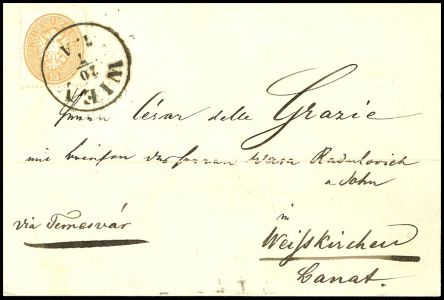 KREUZER
WIEN
20
7
7. A
Herrn César delle Grazie
mit Briefen des Herren Vasa Radulovich
a John
in
via Temesvár
Weißkirchen
Banat.